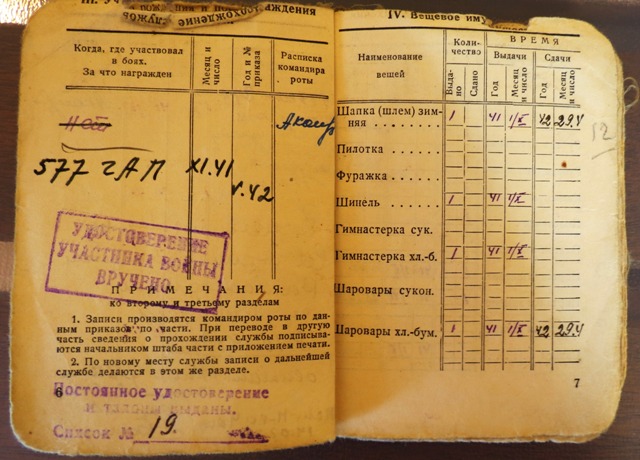 Когда, где участвовал
в боях.
За что награжден
Месяц и
число
Год и №
приказа
Расписка
командира
роты
577 ГАП XI.41
V.42
УДОСТОВЕРЕНИЕ
УЧАСТНИКА ВОЙНЫ
ВРУЧЕНО
ПРИМЕЧАНИЯ:
ко второму и третьему разделам
1. Записи производятся командиром роты по дан-
ным приказов по части. При переводе в другую
часть сведения о прохождении службы подписыва-
ются начальником штаба части с приложением печати.
2. По новому месту службы записи о дальнейшей
службе делаются в этом же разделе.
Постоянное удостоверение
6
и талоны выданы.
Список № 19.
IV. Вещевое
Наименование
вещей
Коли-
чество
ВРЕМЯ
Выдачи
Сдачи
Выда-
но
Сдано
Год
Месяц
и число
Год
Месяц
и число
Шапка (шлем) зим-
няя . . . . . . . 1 41 1/X 42 29.V
12
Пилотка
Фуражка . . . . . .
Шинель . . . . . . 1 41 1/X
Гимнастерка сук.
Гимнастерка хл.-б. 1 41 1/X
Шаровары сукон.
Шаровары хл.-бум. 1 41 1/X 42 29.V
7